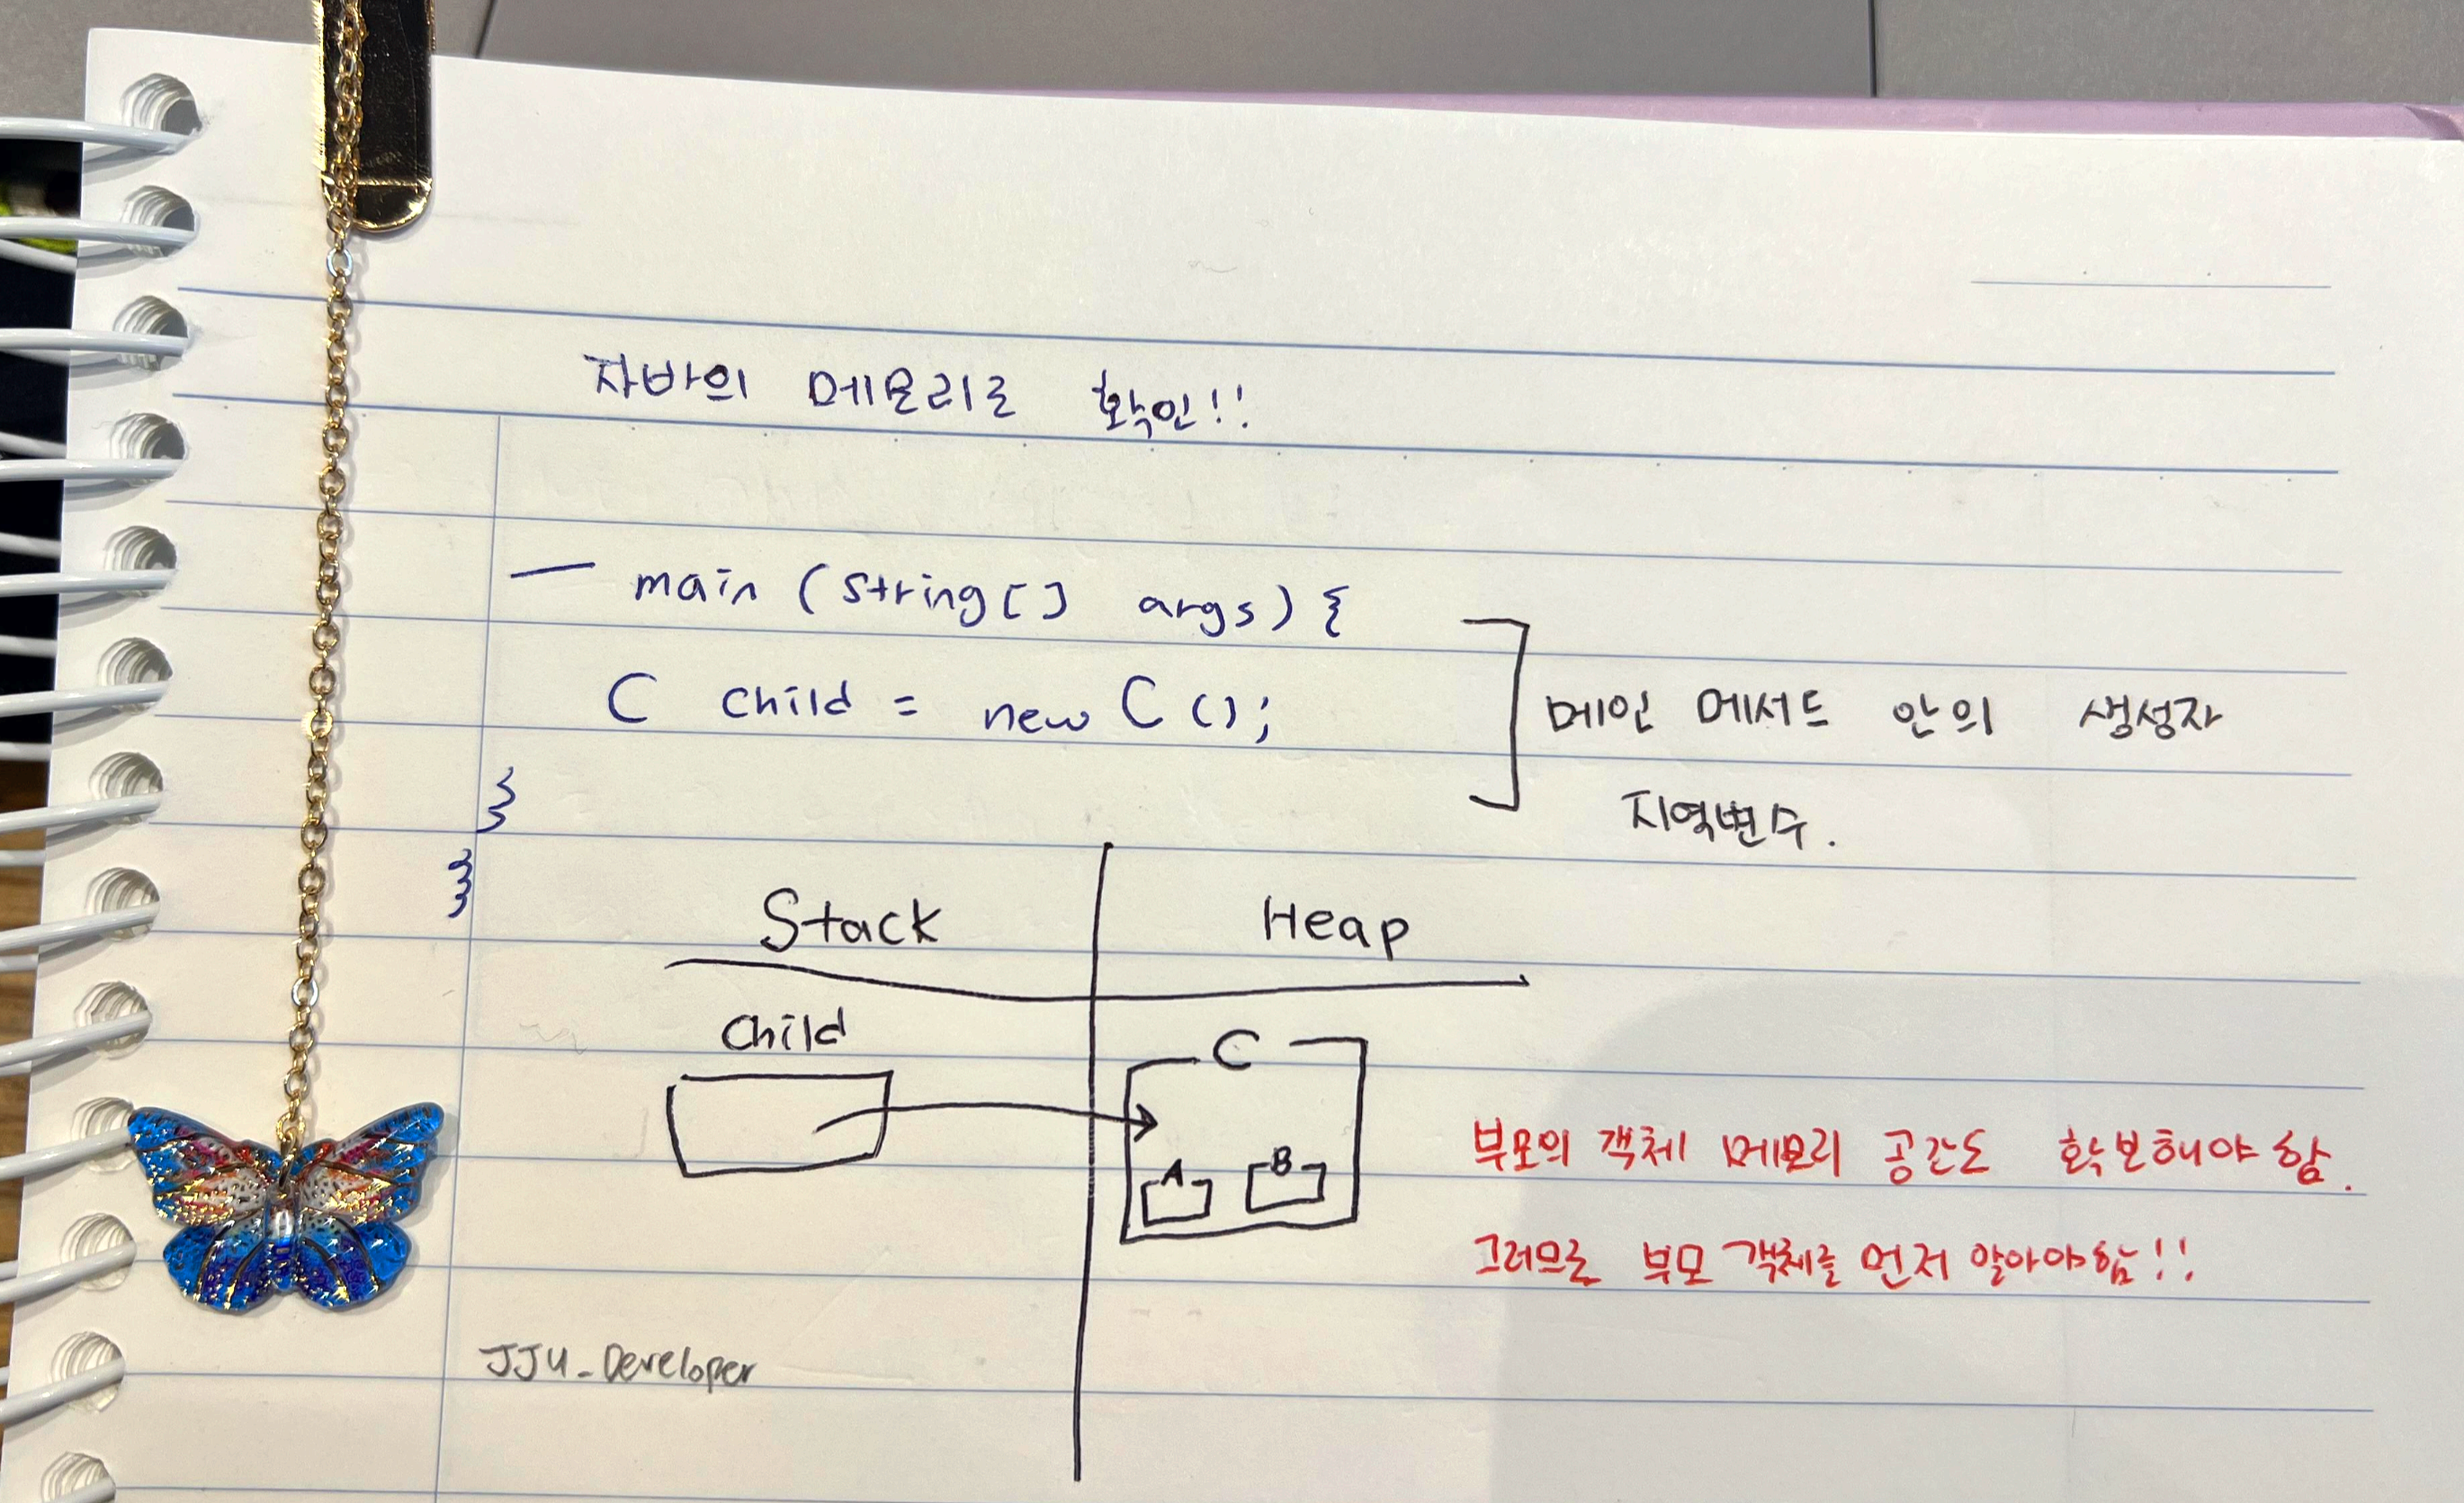 자바의 메모리로 확인!!
— main (String[] args) {
C child = new C();
}
}
메인 메서드 안의 생성자
지역변수.
Stack
Heap
Child
C
A
B
부모의 객체 메모리 공간도 확보해야 함.
그러므로 부모 객체를 먼저 알아야함!!
JJU_Developer